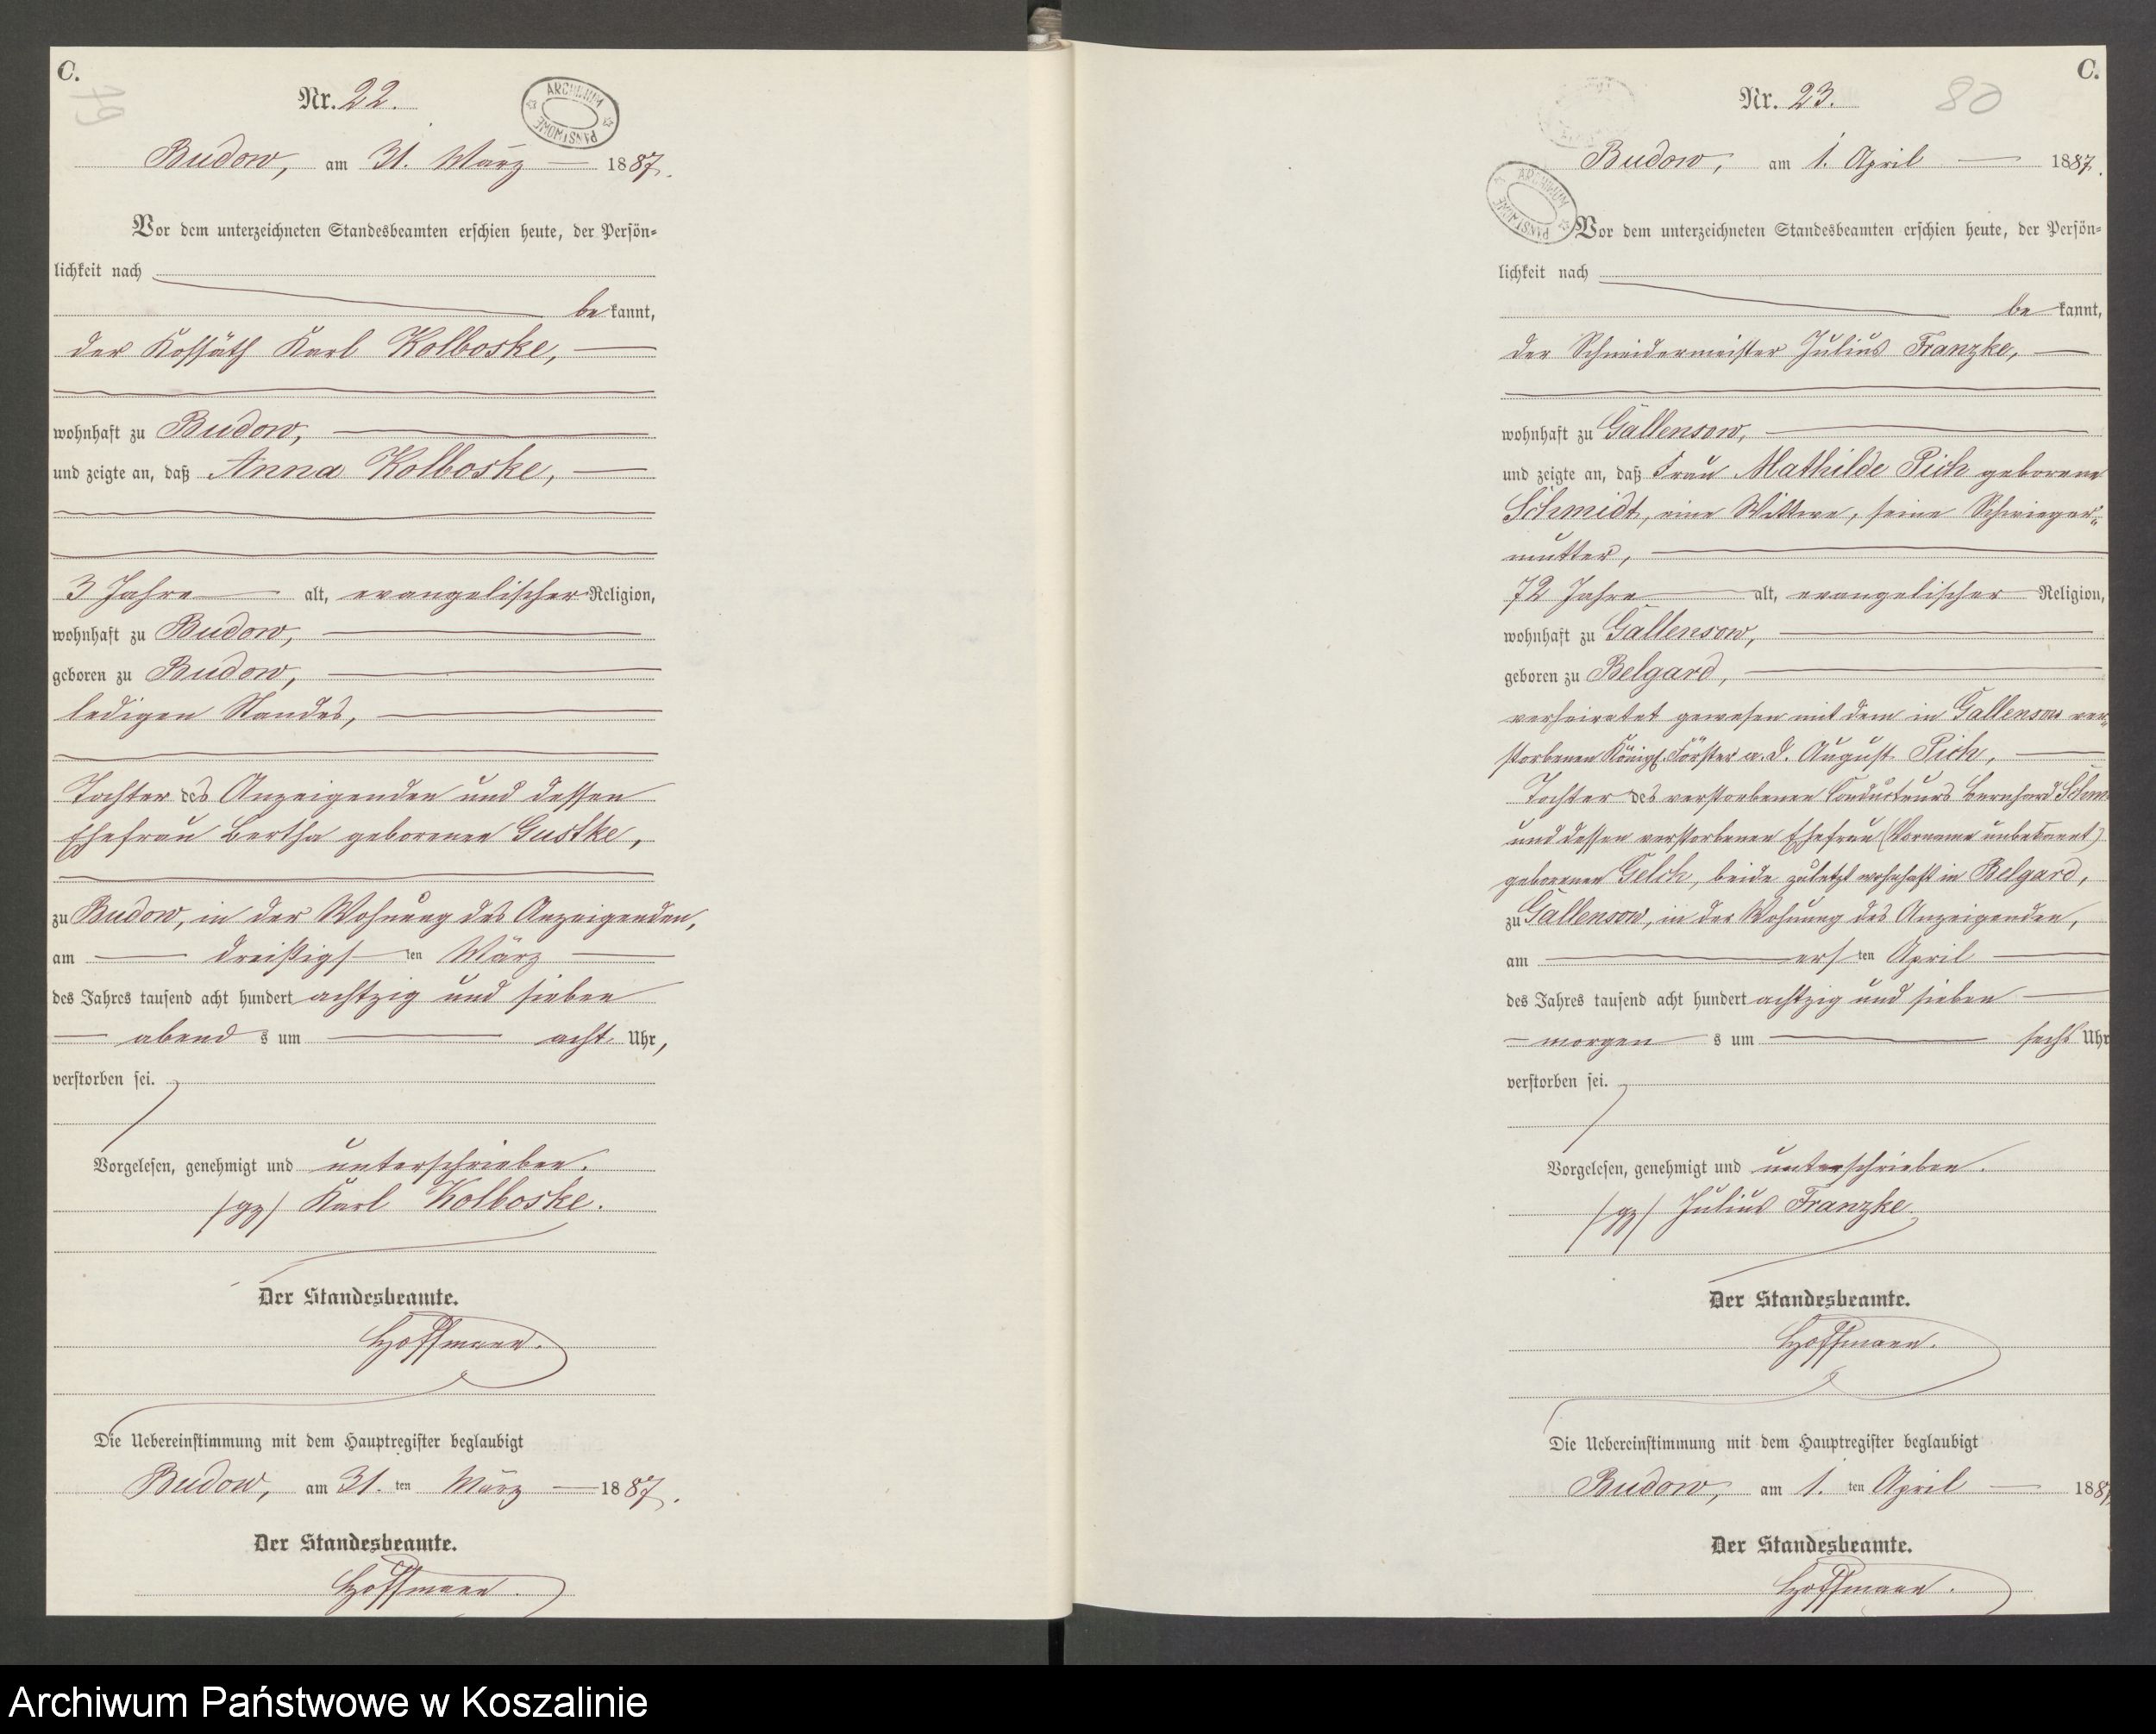 C.
79
Nr. 22.
ARCHIWUM PAŃSTWOWE
Budow, am 31. März 1887.
Vor dem unterzeichneten Standesbeamten erschien heute, der Persön-
lichkeit nach
bekannt,
der Kossäth Karl Kolboske,
wohnhaft zu Budow,
und zeigte an, daß Anna Kolboske,
3 Jahre alt, evangelischer Religion,
wohnhaft zu Budow,
geboren zu Budow,
ledigen Standes,
Tochter des Anzeigenden und dessen
Ehefrau Bertha geborenen Gustke,
zu Budow, in der Wohnung des Anzeigenden,
am dreißigsten März
des Jahres tausend acht hundert achtzig und sieben
abends um acht Uhr,
verstorben sei.
Vorgelesen, genehmigt und unterschrieben.
(gz) Karl Kolboske.
Der Standesbeamte.
Hoffmann.
Die Uebereinstimmung mit dem Hauptregister beglaubigt
Budow, am 31.ten März 1887.
Der Standesbeamte.
Hoffmann.
C.
80
Nr. 23.
Budow, am 1. April 1887.
ARCHIWUM PAŃSTWOWE
Vor dem unterzeichneten Standesbeamten erschien heute, der Persön-
lichkeit nach
bekannt,
der Schneidermeister Julius Franzke,
wohnhaft zu Gallensow,
und zeigte an, daß Frau Mathilde Pich geborene
Schmidt, eine Wittwe, seine Schwieger-
mutter,
72 Jahre alt, evangelischer Religion,
wohnhaft zu Gallensow,
geboren zu Belgard,
verheiratet gewesen mit dem in Gallensow ver-
storbenen Königl. Förster a. D. August Pich,
Tochter des verstorbenen Conducteurs Bernhard Schm
und dessen verstorbenen Ehefrau (Vorname unbekannt)
geborenen Gelch, beide zuletzt wohnhaft in Belgard,
zu Gallensow, in der Wohnung des Anzeigenden,
am ersten April
des Jahres tausend acht hundert achtzig und sieben
morgens um sechs Uhr
verstorben sei.
Vorgelesen, genehmigt und unterschrieben.
(gz) Julius Franzke
Der Standesbeamte.
Hoffmann.
Die Uebereinstimmung mit dem Hauptregister beglaubigt
Budow, am 1.ten April 1887
Der Standesbeamte.
Hoffmann.
Archiwum Państwowe w Koszalinie